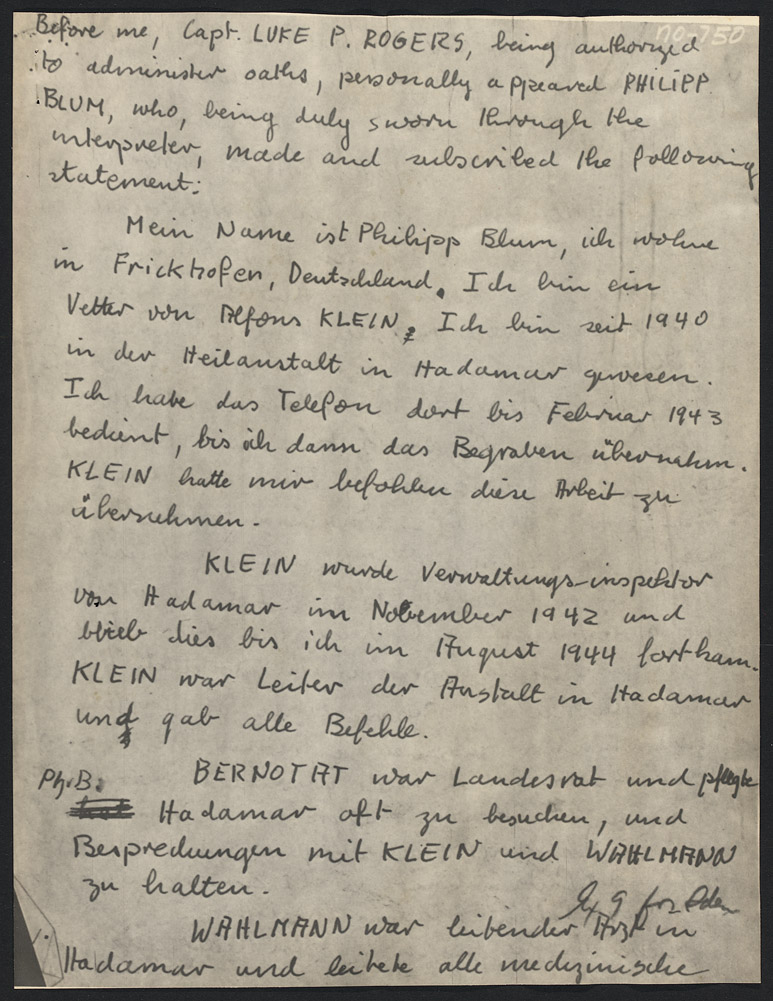 no-750
Before me, Capt. LUKE P. ROGERS, being authorized
to administer oaths, personally appeared PHILIPP
BLUM, who, being duly sworn through the
interpreter, made and subscribed the following
statement:
Mein Name ist Philipp Blum, ich wohne
in Frickhofen, Deutschland. Ich bin ein
Vetter von Alfons KLEIN. Ich bin seit 1940
in der Heilanstalt in Hadamar gewesen.
Ich habe das Telefon dort bis Februar 1943
bedient, bis ich dann das Begraben übernahm.
KLEIN hatte mir befohlen diese Arbeit zu
übernehmen.
KLEIN wurde Verwaltungs-inspektor
von Hadamar im November 1942 und
blieb dies bis ich im August 1944 fortkam.
KLEIN war Leiter der Anstalt in Hadamar
und gab alle Befehle.
Ph.B. BERNOTAT war Landesrat und pflegte
Hadamar oft zu besuchen, und
Besprechungen mit KLEIN und WAHLMANN
zu halten.
Ex 9 for Iden
WAHLMANN war leitender Arzt in
Hadamar und leitete alle medizinische